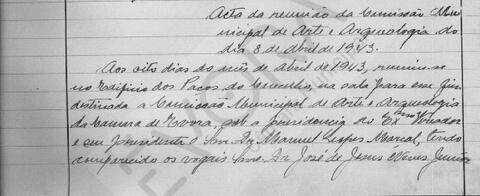 Acta da reunião da Comissão Mu-
nicipal de Arte e Arqueologia do
dia 8 de abril de 1943.
Aos oito dias do mês de abril de 1943, reuniu-se
no Edificio dos Paços do Concelho, na sala para esse fim
destinada a Comissão Municipal de Arte e Arqueologia
da Camara de Evora, sob a presidencia do Exmo Vereador
e seu Presidente o Snr. Dr. Manuel Lopes Marçal, tendo
comparecido os vogais Snrs. Dr. José de Jesus Neves Junior